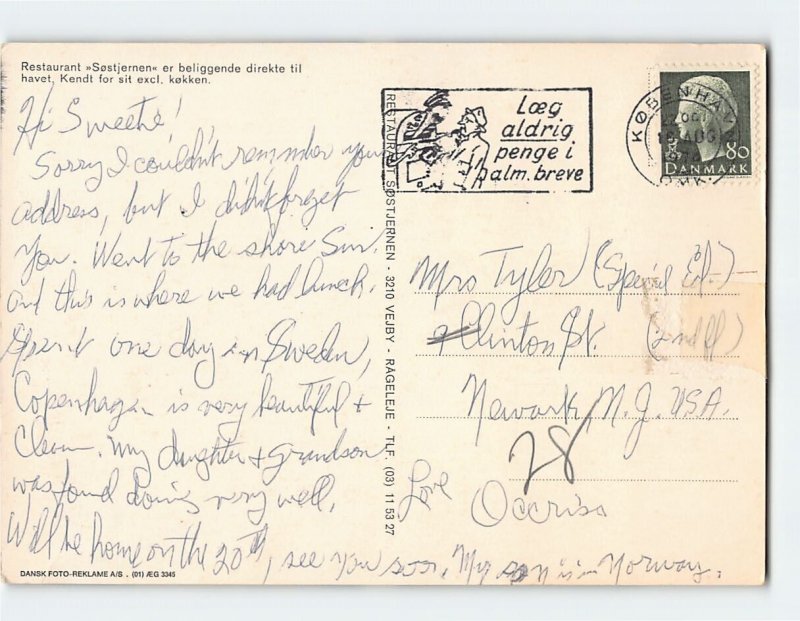 Restaurant »Søstjernen« er beliggende direkte til
havet. Kendt for sit excl. køkken.
Hi Sweetie!
Sorry I couldn't remember your
address, but I didn't forget
you. Went to the shore Sun.
and this is where we had lunch.
Spent one day in Sweden,
Copenhagen is very beautiful +
Clean. My daughter + Grandson
was found doing very well.
Will be home on the 20th, see you soon, My son is in Norway.
DANSK FOTO-REKLAME A/S . (01) ÆG 3345
RESTAURANT SØSTJERNEN - 3210 VEJBY - RÅGELEJE - TLF. (03) 11 53 27
Læg
aldrig
penge i
alm. breve
KØBENHAVN
19 AUG
80
DANMARK
Mrs Tyler (Special Ed.)
Clinton St.
Newark, N.J. USA.
28
Love